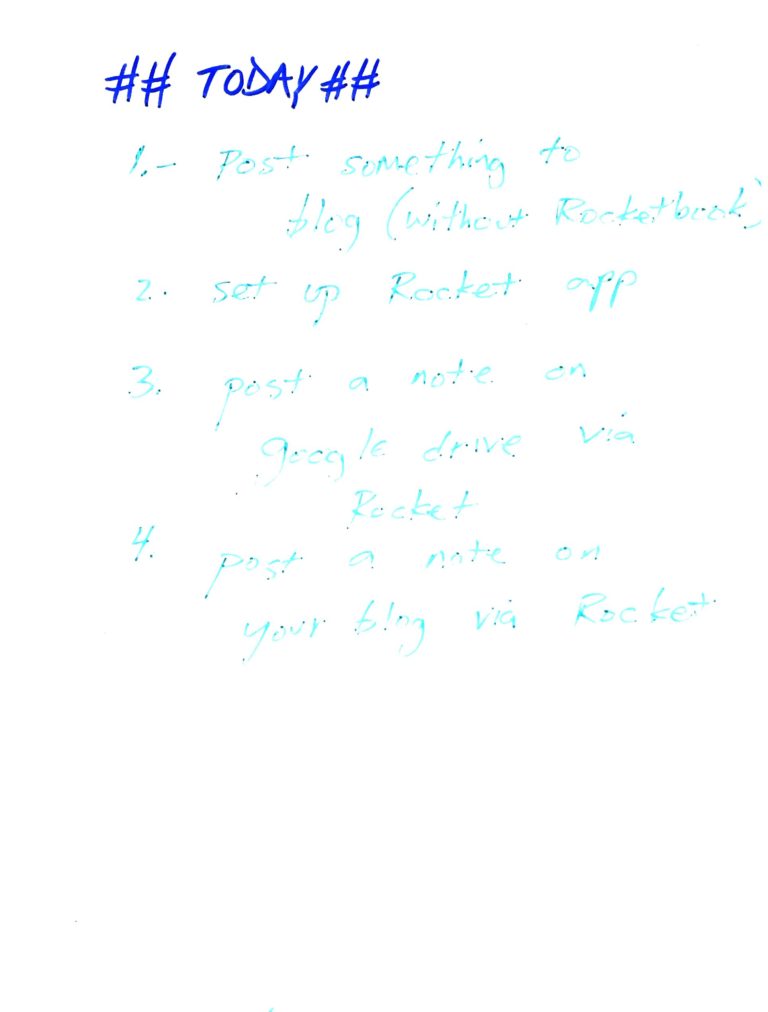 ## TODAY ##
1.- Post something to
blog (without Rocketbook)
2. set up Rocket app
3. post a note on
google drive via
Rocket
4. post a note on
your blog via Rocket